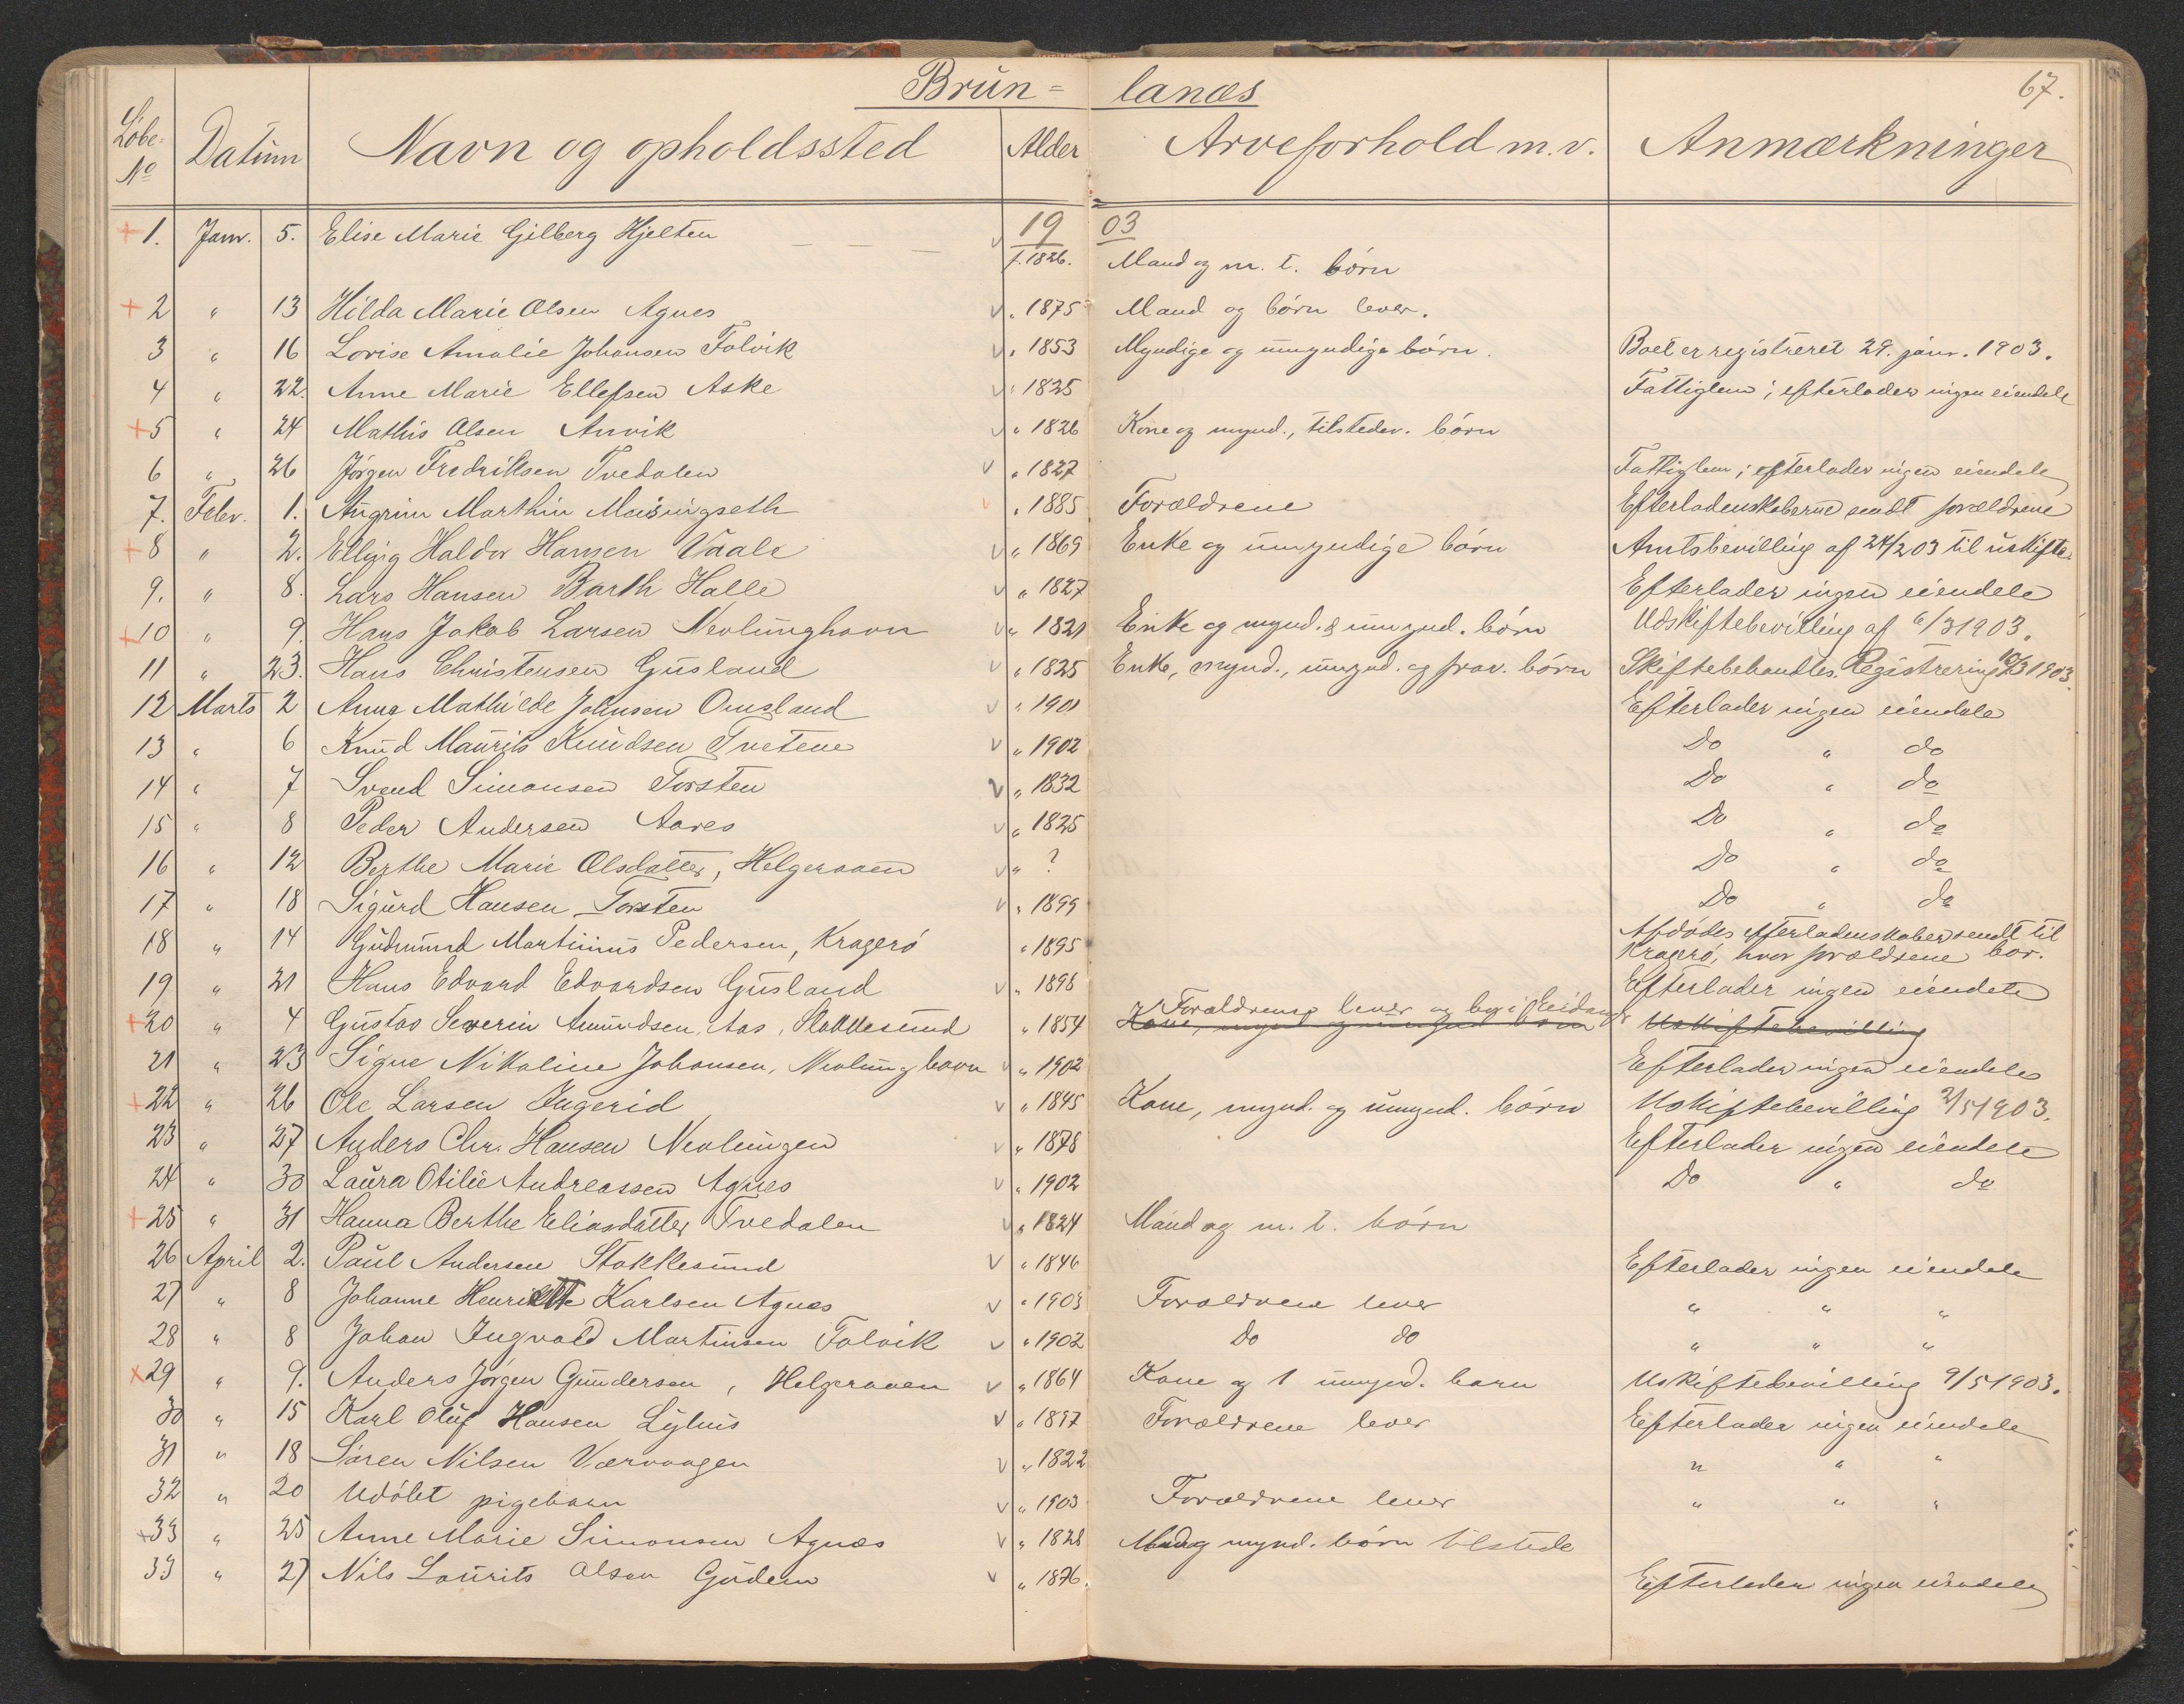 Brun= lanæs
67.
Løbe- No Datum Navn og opholdssted Alder Arveforhold m.v. Anmærkninger
19 03
+ 1. Janr. 5. Elise Marie Gilberg Hjelten f. 1826. Mand og m. t. børn
+ 2 " 13 Hilda Marie Olsen Agnes " 1875 Mand og børn lever.
3 " 16 Lovise Amalie Johansen Falvik " 1853 Myndige og umyndige børn. Boet er registreret 29. janr. 1903.
4 " 22. Anne Marie Ellefsen Aske " 1825 Fattiglem; efterlader ingen eiendele
+ 5 " 24 Mathis Olsen Anvik " 1826 Kone og mynd., tilstedev. børn
6 " 26 Jørgen Fredriksen Tvedalen " 1827 Fattiglem; efterlader ingen eiendele
7. Febr. 1. Angrim Marthin " 1885 Forældrene Efterladenskaberne sendt forældrene
+ 8 " 2. Elling Haldor Hansen Vaale " 1869 Enke og umyndige børn Amtsbevilling af 24/2 03 til uskifte.
9. " 8. Lars Hansen Barth Halle " 1827 Efterlader ingen eiendele
+ 10 " 9. Hans Jakob Larsen Nevlunghavn " 1821 Enke og mynd. & umynd. børn Udskiftebevilling af 6/3 1903.
11 " 23. Hans Christensen Gusland " 1825 Enke, mynd., umynd. og frav. børn Skiftebehandles. Registrering 10/3 1903.
12 Marts 2 Anna Mathilde Johnsen Omsland " 1901 Efterlader ingen eiendele
13 " 6 Knud Maurits Knudsen Tvetene " 1902 Do " do
14 " 7 Svend Simonsen Torsten " 1832 Do " do
15 " 8 Peder Andersen Aares " 1825 Do " do
16 " 12 Berthe Marie Olsdatter, Helgeroaen " ? Do " do
17 " 18 Sigurd Hansen Torsten " 1899 Do " do
18 " 14 Gudmund Martinius Pedersen, Kragerø " 1895 Afdødes efterladenskaber sendt til
Kragerø, hvor forældrene bor.
19 " 21 Hans Edvard Edvardsen Gusland " 1898 Efterlader ingen eiendele
Forældrene lever og bor i Eidanger
+ 20 " 4 Gustav Severin Amundsen Aas, Stokkesund " 1854 Kone, mynd og umynd børn Uskiftebevilling
21 " 23 Signe Nikoline Johansen, Nevlunghavn " 1902 Efterlader ingen eiendele
+ 22 " 26 Ole Larsen Ingerid " 1845 Kone, mynd. og umynd. børn Uskiftebevilling 2/5 1903.
23 " 27 Anders Chr. Hansen Nevlungen " 1878 Efterlader ingen eiendele
24 " 30 Laura Otilie Andreassen Agnes " 1902 Do " do
+ 25 " 31 Hanna Berthe Eliasdatter Tvedalen " 1824 Mand og m. t. børn
26 April 2. Paul Andersen Stokkesund " 1846 Efterlader ingen eiendele
27 " 8 Johanne Henriette Karlsen Agnæs " 1903 Forældrene lever " " "
28 " 8 Johan Ingvald Martinsen Falvik " 1902 Do do " " "
x 29 " 9. Anders Jørgen Gundersen, Helgeroaen " 1864 Kone og 1 umynd. barn Uskiftebevilling 9/5 1903.
30 " 15 Karl Oluf Hansen Lyhus " 1897 Forældrene lever Efterlader ingen eiendele
31 " 18 Søren Nilsen Værvaagen " 1822 " " "
32 " 20 Udøbt pigebarn " 1903 Forældrene lever " " "
x 33 " 25 Anne Marie Simonsen Agnæs " 1828 Mand og mynd. børn tilstede
33 " 27 Nils Laurits Olsen Gudem " 1876. Efterlader ingen eiendele